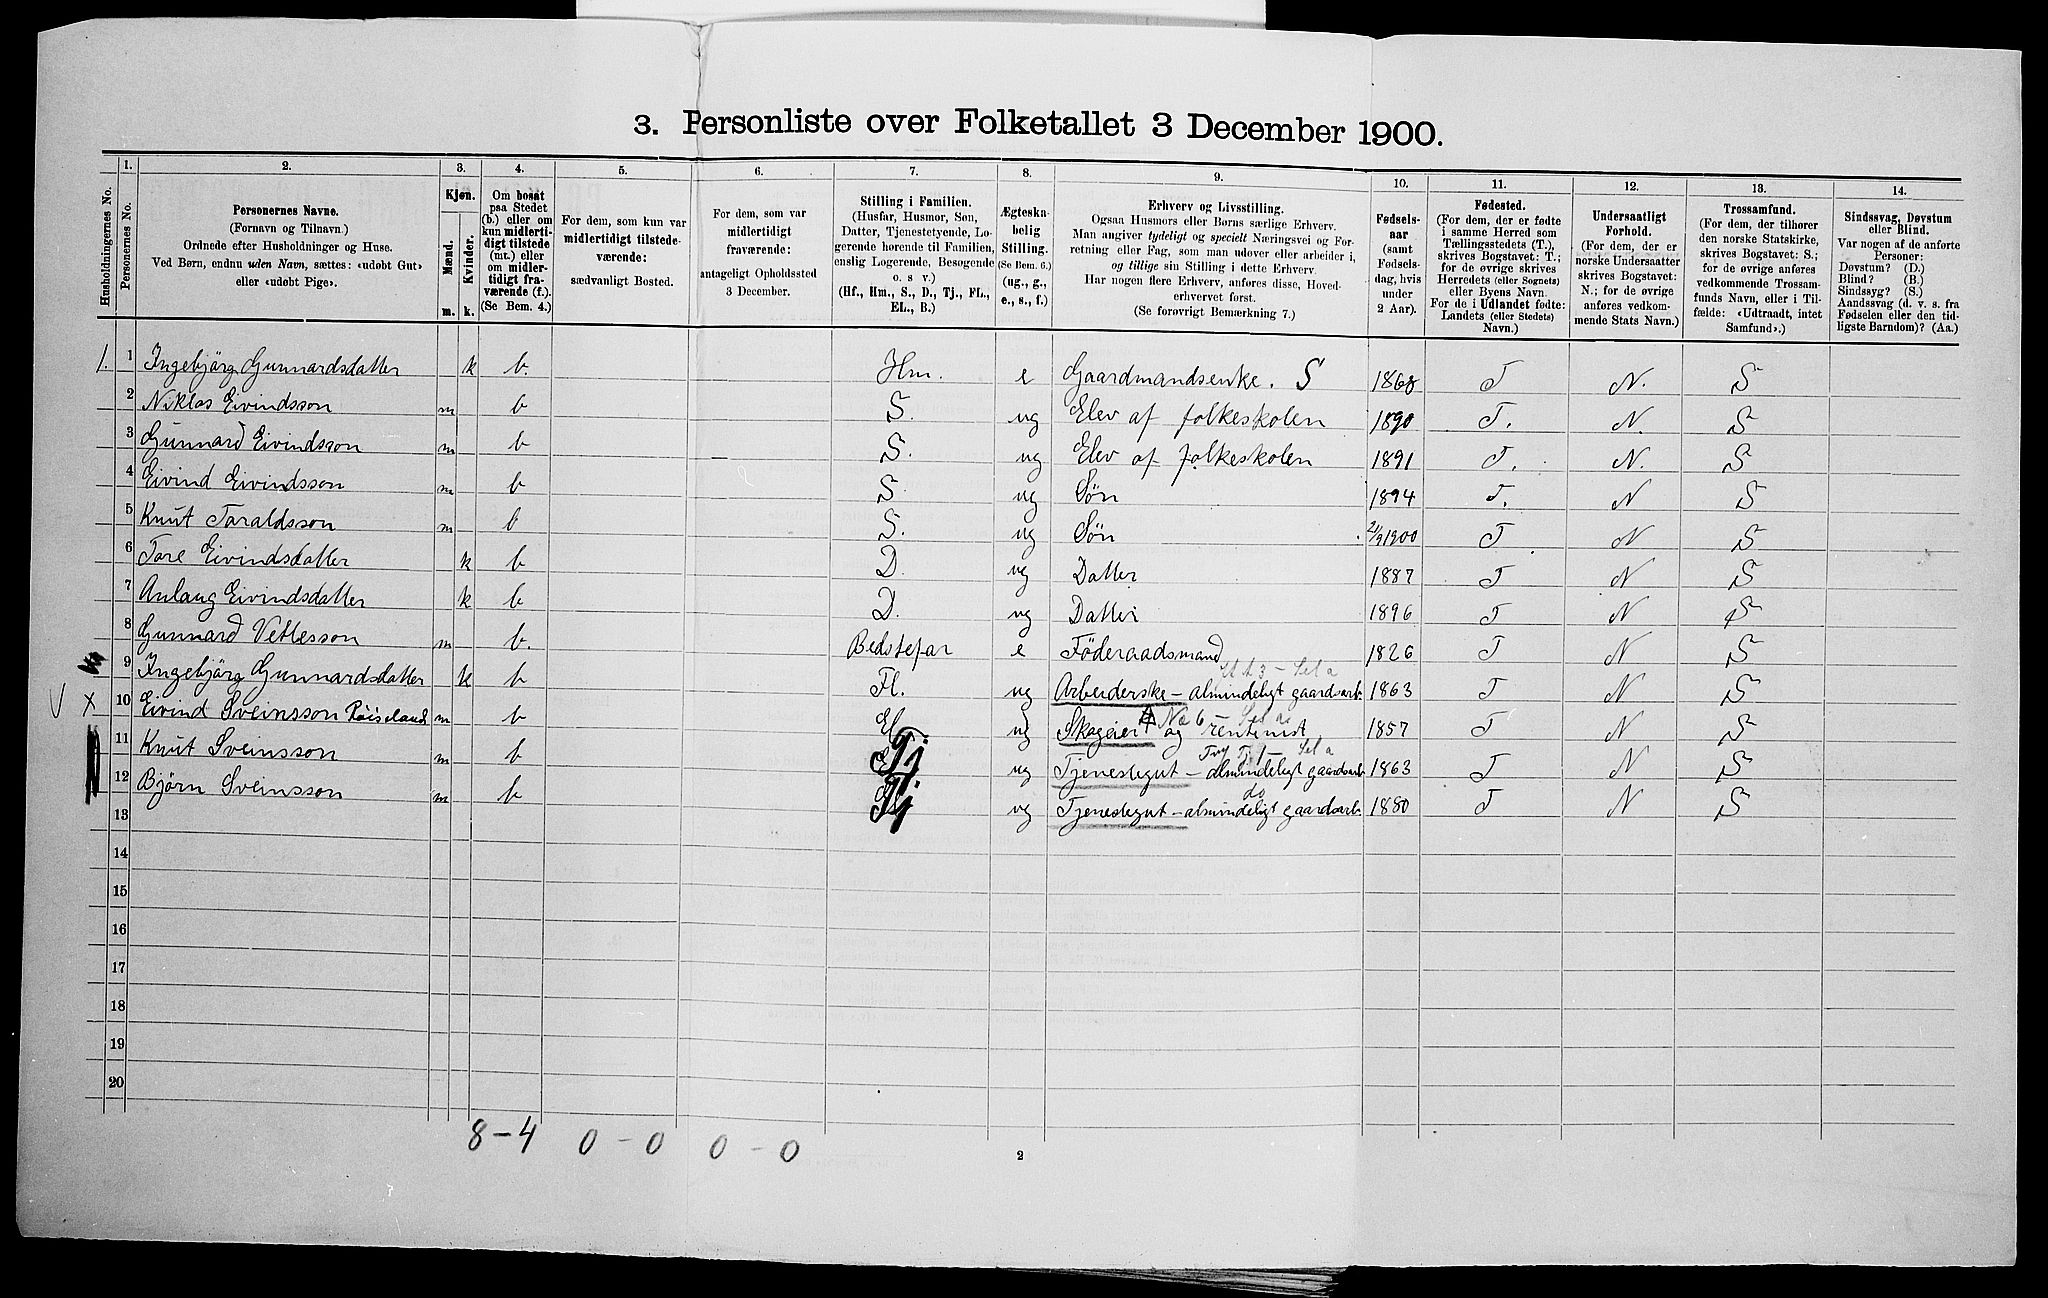 3. Personliste over Folketallet 3 December 1900.
Husholdningernes No.
1.
Personernes No.
2.
Personernes Navne.
(Fornavn og Tilnavn.)
Ordnede efter Husholdninger og Huse.
Ved Børn, endnu uden Navn, sættes: «udøbt Gut»
eller «udøbt Pige».
3.
Kjøn.
Mænd.
Kvinder.
m. k.
4.
Om bosat
paa Stedet
(b.) eller om
kun midlerti-
digt tilstede
(mt.) eller
om midler-
tidigt fra-
værende (f.).
(Se Bem. 4.)
5.
For dem, som kun var
midlertidigt tilstede-
værende:
sædvanligt Bosted.
6.
For dem, som var
midlertidigt
fraværende:
antageligt Opholdssted
3 December.
7.
Stilling i Familien.
(Husfar, Husmor, Søn,
Datter, Tjenestetyende, Lo-
gerende hørende til Familien,
enslig Logerende, Besøgende
o. s v.)
(Hf., Hm., S., D., Tj., FL.,
EL., B.)
8.
Ægteska-
belig
Stilling.
(Se Bem. 6.)
(ug., g.,
e., s., f.)
9.
Erhverv og Livsstilling.
Ogsaa Husmors eller Børns særlige Erhverv.
Man angiver tydeligt og specielt Næringsvei og For-
retning eller Fag, som man udøver eller arbeider i,
og tillige sin Stilling i dette Erhverv.
Har nogen flere Erhverv, anføres disse, Hoved-
erhvervet først.
(Se forøvrigt Bemærkning 7.)
10.
Fødsels-
aar
(samt
Fødsels-
dag, hvis
under
2 Aar).
11.
Fødested.
(For dem, der er fødte
i samme Herred som
Tællingsstedets (T.),
skrives Bogstavet: T.;
for de øvrige skrives
Herredets (eller Sognets)
eller Byens Navn.
For de i Udlandet fødte:
Landets (eller Stedets)
Navn.)
12.
Undersaatligt
Forhold.
(For dem, der er
norske Undersaatter
skrives Bogstavet:
N.; for de øvrige
anføres vedkom-
mende Stats Navn.)
13.
Trossamfund.
(For dem, der tilhører
den norske Statskirke,
skrives Bogstavet: S.;
for de øvrige anføres
vedkommende Trossam-
funds Navn, eller i Til-
fælde: «Udtraadt, intet
Samfund».)
14.
Sindssvag, Døvstum
eller Blind.
Var nogen af de anførte
Personer:
Døvstum? (D.)
Blind? (B.)
Sindssyg? (S.)
Aandssvag (d. v. s. fra
Fødselen eller den tid-
ligste Barndom)? (Aa.)
1. 1 Ingebjörg Gunnardsdatter k b. Hm. e Gaardmandsenke. S 1868 T N. S
2 Niklas Eivindsson m b S. ug Elev af folkeskolen 1890 T. N. S
3 Gunnard Eivindsson m b S. ug Elev af folkeskolen 1891 T. N. S
4 Eivind Eivindsson m b S ug Søn 1894 T. N S
5 Knut Taraldsson m b S. ug Søn 21/9 1900 T N S
6 Tore Eivindsdatter k b D. ug Datter 1887 T N S
7 Anlaug Eivindsdatter k b D. ug Datter 1896 T N S
8 Gunnard Vetlesson m b. Bedstefar e Föderaadsmand 1826 T N S
9 Ingebjörg Gunnardsdatter k b Fl. ug Arbeiderske - almindeligt gaardsarb. 1863 T N S
V X 10 Eivind Sveinsson Röiseland m b El. ug Skogeier og rentenist 1857 T N S
11 Knut Sveinsson m b Tj. ug Tjenestegut - almindeligt gaardsarb. 1863 T N S
12 Björn Sveinsson m b Tj ug Tjenestegut - almindeligt gaardsarb. 1880 T N S
13
14
15
16
17
18
19
20
8-4 0-0 0-0
2